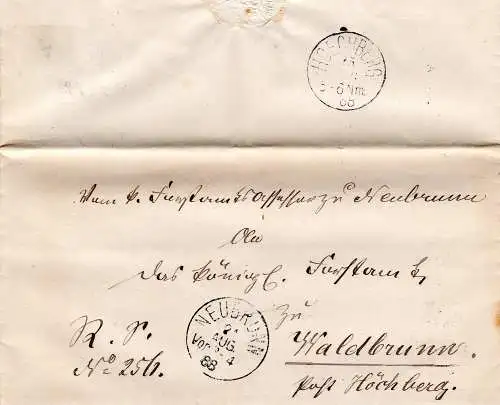 HÖCHBERG
5-6 Nm.
88
Vom k. Forstamts Assessor zu Neubrunn
An
das königl. Forstamt
zu
NEUBRUNN
AUG.
Vor. 3-4
88
R. S.
No 256.
Waldbrunn.
Post Höchberg.